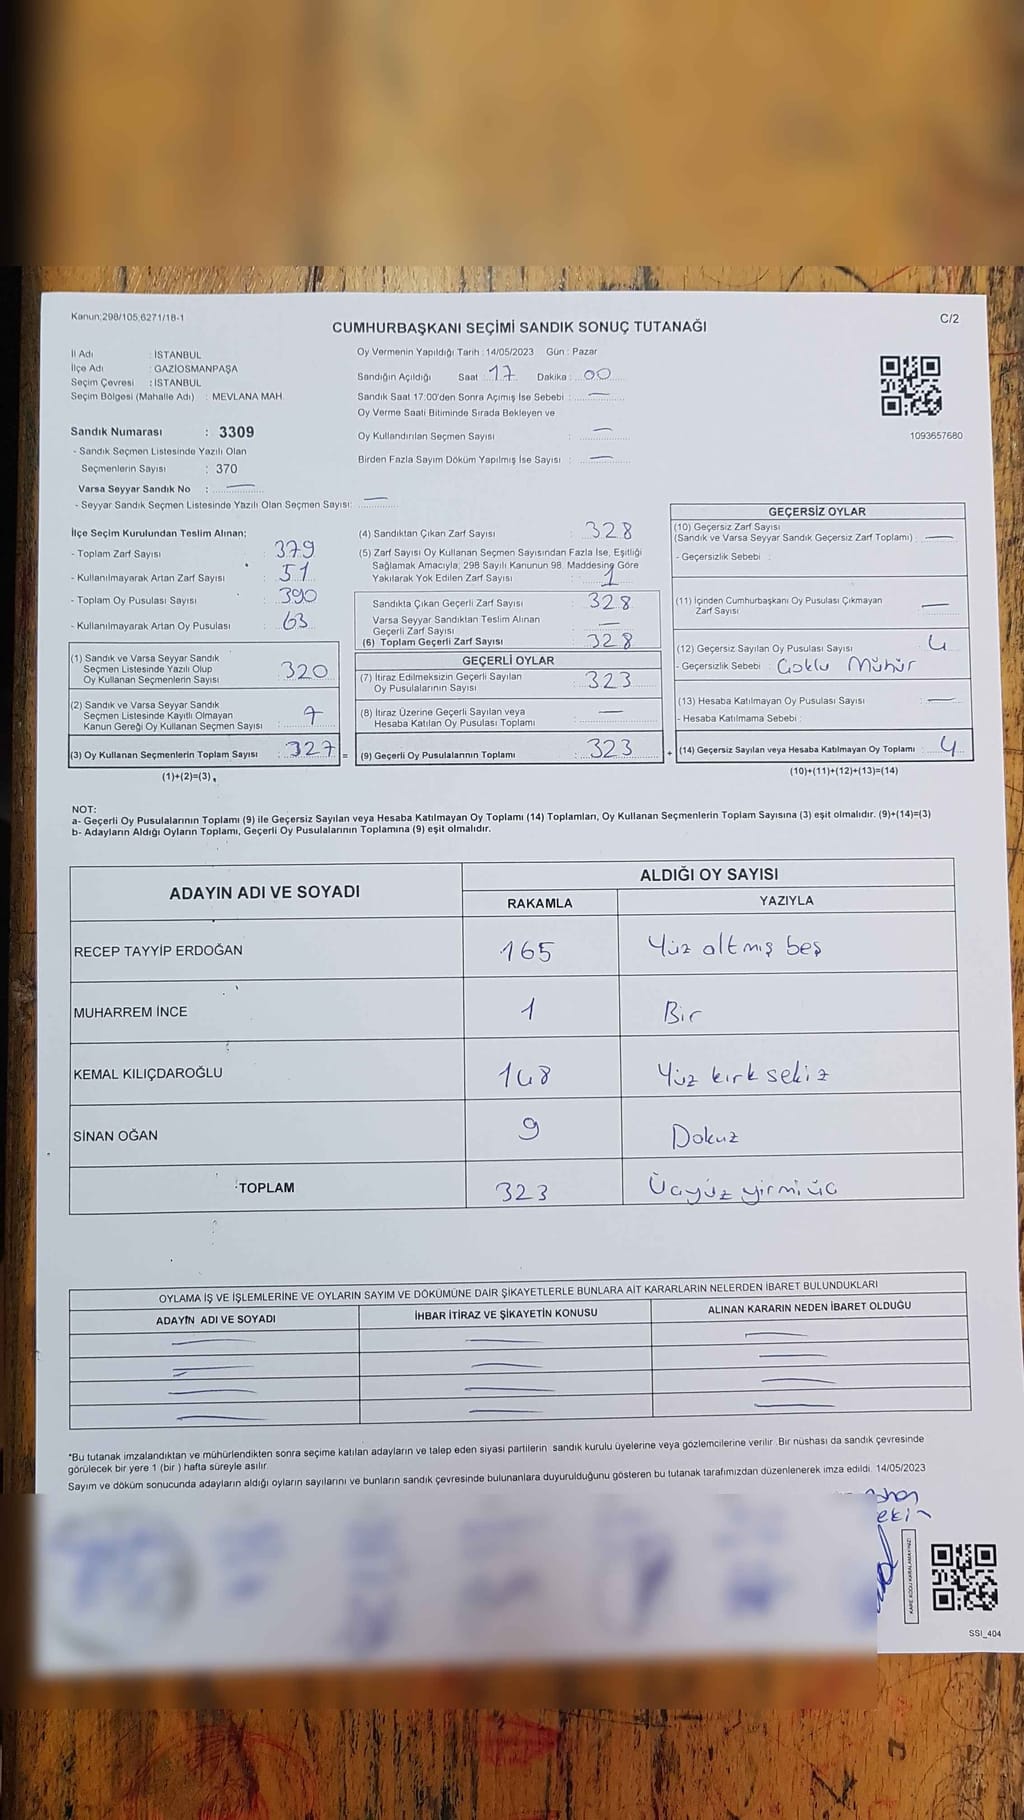 Kanun:298/105,6271/18-1
C/2
CUMHURBAŞKANI SEÇİMİ SANDIK SONUÇ TUTANAĞI
İl Adı : İSTANBUL
İlçe Adı : GAZİOSMANPAŞA
Seçim Çevresi : İSTANBUL
Seçim Bölgesi (Mahalle Adı) : MEVLANA MAH.
Sandık Numarası : 3309
- Sandık Seçmen Listesinde Yazılı Olan
Seçmenlerin Sayısı : 370
Varsa Seyyar Sandık No : —
- Seyyar Sandık Seçmen Listesinde Yazılı Olan Seçmen Sayısı: —
Oy Vermenin Yapıldığı Tarih : 14/05/2023 Gün : Pazar
Sandığın Açıldığı Saat 17 Dakika : 00
Sandık Saat 17:00'den Sonra Açımış İse Sebebi : —
Oy Verme Saati Bitiminde Sırada Bekleyen ve
Oy Kullandırılan Seçmen Sayısı : —
Birden Fazla Sayım Döküm Yapılmış İse Sayısı : —
1093657680
İlçe Seçim Kurulundan Teslim Alınan;
- Toplam Zarf Sayısı : 379
- Kullanılmayarak Artan Zarf Sayısı : 51
- Toplam Oy Pusulası Sayısı : 390
- Kullanılmayarak Artan Oy Pusulası : 63
(1) Sandık ve Varsa Seyyar Sandık
Seçmen Listesinde Yazılı Olup
Oy Kullanan Seçmenlerin Sayısı : 320
(2) Sandık ve Varsa Seyyar Sandık
Seçmen Listesinde Kayıtlı Olmayan
Kanun Gereği Oy Kullanan Seçmen Sayısı : 7
(3) Oy Kullanan Seçmenlerin Toplam Sayısı : 327 =
(1)+(2)=(3)
(4) Sandıktan Çıkan Zarf Sayısı : 328
(5) Zarf Sayısı Oy Kullanan Seçmen Sayısından Fazla İse, Eşitliği
Sağlamak Amacıyla; 298 Sayılı Kanunun 98. Maddesine Göre
Yakılarak Yok Edilen Zarf Sayısı : 1
Sandıkta Çıkan Geçerli Zarf Sayısı : 328
Varsa Seyyar Sandıktan Teslim Alınan
Geçerli Zarf Sayısı : —
(6) Toplam Geçerli Zarf Sayısı : 328
GEÇERLİ OYLAR
(7) İtiraz Edilmeksizin Geçerli Sayılan
Oy Pusulalarının Sayısı : 323
(8) İtiraz Üzerine Geçerli Sayılan veya
Hesaba Katılan Oy Pusulası Toplamı : —
(9) Geçerli Oy Pusulalarının Toplamı : 323 +
GEÇERSİZ OYLAR
(10) Geçersiz Zarf Sayısı
(Sandık ve Varsa Seyyar Sandık Geçersiz Zarf Toplamı) : —
- Geçersizlik Sebebi :
(11) İçinden Cumhurbaşkanı Oy Pusulası Çıkmayan
Zarf Sayısı : —
(12) Geçersiz Sayılan Oy Pusulası Sayısı : 4
- Geçersizlik Sebebi : Çoklu Mühür
(13) Hesaba Katılmayan Oy Pusulası Sayısı : —
- Hesaba Katılmama Sebebi :
(14) Geçersiz Sayılan veya Hesaba Katılmayan Oy Toplamı : 4
(10)+(11)+(12)+(13)=(14)
NOT:
a- Geçerli Oy Pusulalarının Toplamı (9) ile Geçersiz Sayılan veya Hesaba Katılmayan Oy Toplamı (14) Toplamları, Oy Kullanan Seçmenlerin Toplam Sayısına (3) eşit olmalıdır. (9)+(14)=(3)
b- Adayların Aldığı Oyların Toplamı, Geçerli Oy Pusulalarının Toplamına (9) eşit olmalıdır.
ADAYIN ADI VE SOYADI
ALDIĞI OY SAYISI
RAKAMLA YAZIYLA
RECEP TAYYİP ERDOĞAN 165 Yüz altmış beş
MUHARREM İNCE 1 Bir
KEMAL KILIÇDAROĞLU 148 Yüz kırk sekiz
SİNAN OĞAN 9 Dokuz
TOPLAM 323 Üçyüz yirmi üç
OYLAMA İŞ VE İŞLEMLERİNE VE OYLARIN SAYIM VE DÖKÜMÜNE DAİR ŞİKAYETLERLE BUNLARA AİT KARARLARIN NELERDEN İBARET BULUNDUKLARI
ADAYIN ADI VE SOYADI İHBAR İTİRAZ VE ŞİKAYETİN KONUSU ALINAN KARARIN NEDEN İBARET OLDUĞU
*Bu tutanak imzalandıktan ve mühürlendikten sonra seçime katılan adayların ve talep eden siyasi partilerin sandık kurulu üyelerine veya gözlemcilerine verilir. Bir nüshası da sandık çevresinde
görülecek bir yere 1 (bir ) hafta süreyle asılır.
Sayım ve döküm sonucunda adayların aldığı oyların sayılarını ve bunların sandık çevresinde bulunanlara duyurulduğunu gösteren bu tutanak tarafımızdan düzenlenerek imza edildi. 14/05/2023
KARE KODU KARALAMAYINIZ!
SSI_404